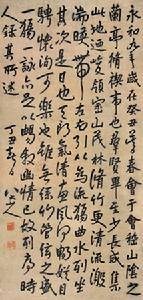 永和九年歲在癸丑暮春會于會稽山陰之
蘭亭脩禊事也群賢畢至少長咸集
此地迺峻領崇山茂林脩竹更清流激
湍暎帶左右引以為流觴曲水列坐
其次是日也天朗氣清惠風和暢娛目
騁懷洵可樂也雖無絲竹管弦之盛一
觴一詠亦足以暢敘幽情已故列序時
人錄其所述
丁丑 八大山人